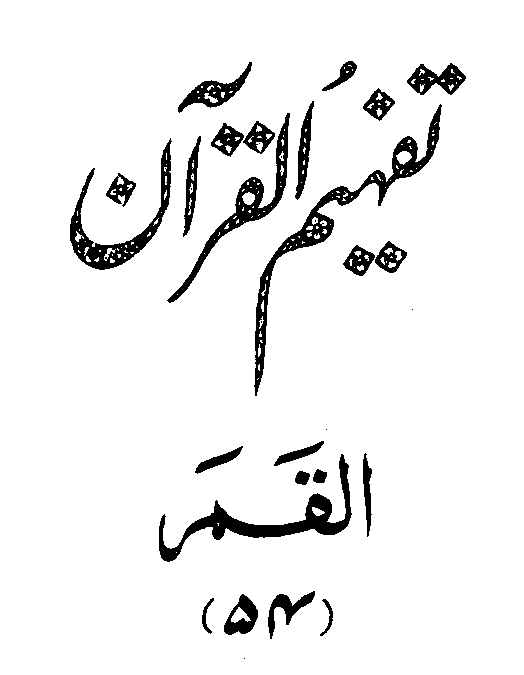 تفہیمُ القرآن
القَمَر
(۵۴)